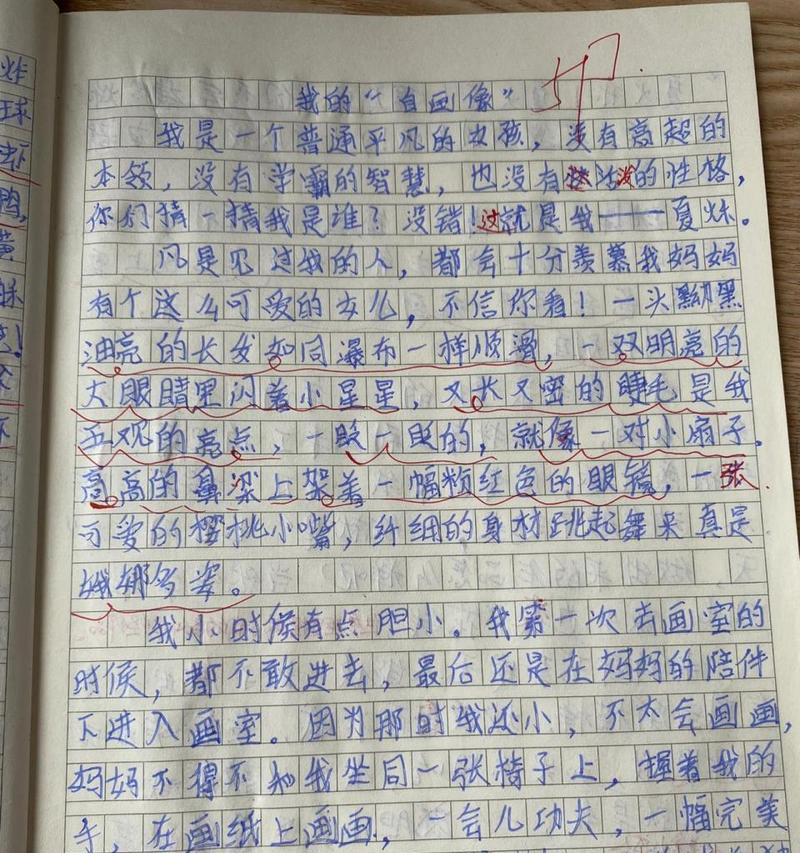 我的“自画像”
我是一个普通平凡的女孩，没有高超的
本领，没有学霸的智慧，也没有活泼的性格，
你们猜一猜我是谁？没错！这就是我——夏烁。
凡是见过我的人，都会十分羡慕我妈妈
有个这么可爱的女儿，不信你看！一头黝黑
油亮的长发如同瀑布一样顺滑，一双明亮的
大眼睛里闪着小星星，又长又密的睫毛是我
五观的亮点，一眨一眨的，就像一对小扇子，
高高的鼻梁上架着一幅粉红色的眼镜，一张
可爱的樱桃小嘴，纤细的身材跳起舞来真是
婀娜多姿。
我小时候有点胆小。我第一次去画室的
时候，都不敢进去，最后还是在妈妈的陪伴
下进入画室。因为那时我还小，不太会画画，
妈妈不得不和我坐同一张椅子上，握着我的
手，在画纸上画画，一会儿功夫，一幅完美
炸
球
虾
鸭